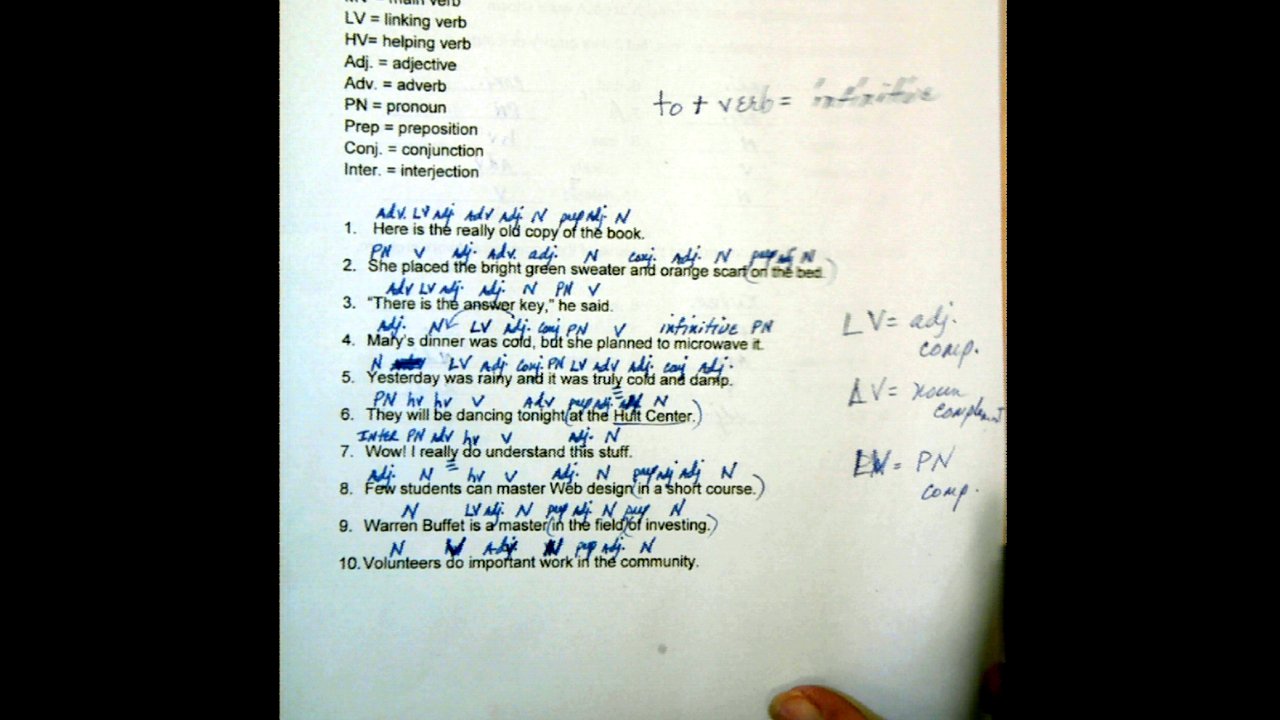 MV = main verb
LV = linking verb
HV= helping verb
Adj. = adjective
Adv. = adverb
PN = pronoun
Prep = preposition
Conj. = conjunction
Inter. = interjection
to + verb = infinitive
Adv. LV Adj. Adv Adj. N prep Adj. N
1. Here is the really old copy of the book.
PN V Adj. Adv. adj. N conj. Adj. N prep adj N
2. She placed the bright green sweater and orange scarf (on the bed.)
Adv LV Adj. Adj. N PN V
3. "There is the answer key," he said.
Adj. N LV Adj. conj PN V infinitive PN
4. Mary's dinner was cold, but she planned to microwave it.
N LV Adj conj. PN LV Adv Adj. conj Adj.
5. Yesterday was rainy and it was truly cold and damp.
PN hv hv V Adv prep adj. N
6. They will be dancing tonight (at the Hult Center.)
Inter PN adv hv V adj. N
7. Wow! I really do understand this stuff.
Adj. N hv V Adj. N prep adj Adj N
8. Few students can master Web design (in a short course.)
N LV Adj. N prep adj. N prep N
9. Warren Buffet is a master (in the field) (of investing.)
N V Adj. N prep Adj. N
10. Volunteers do important work in the community.
LV = adj. comp.
LV = noun complement
LV = PN comp.